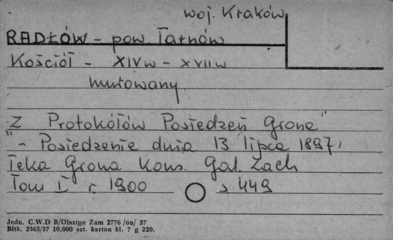 woj. Kraków
RADŁÓW - pow. Tarnów
Kościół - XIVw - XVIIw
murowany
"Z Protokółów Posiedzeń Grona"
- Posiedzenie dnia 13 lipca 1897,
Teka Grona Kons. Gal. Zach
Tom I r. 1900 s 449
Jedn. C.W.D B/Olsztyn Zam 2776 /on/ 57
Bltk. 2563/57 10.000 szt. karton kl. 7 g 220.